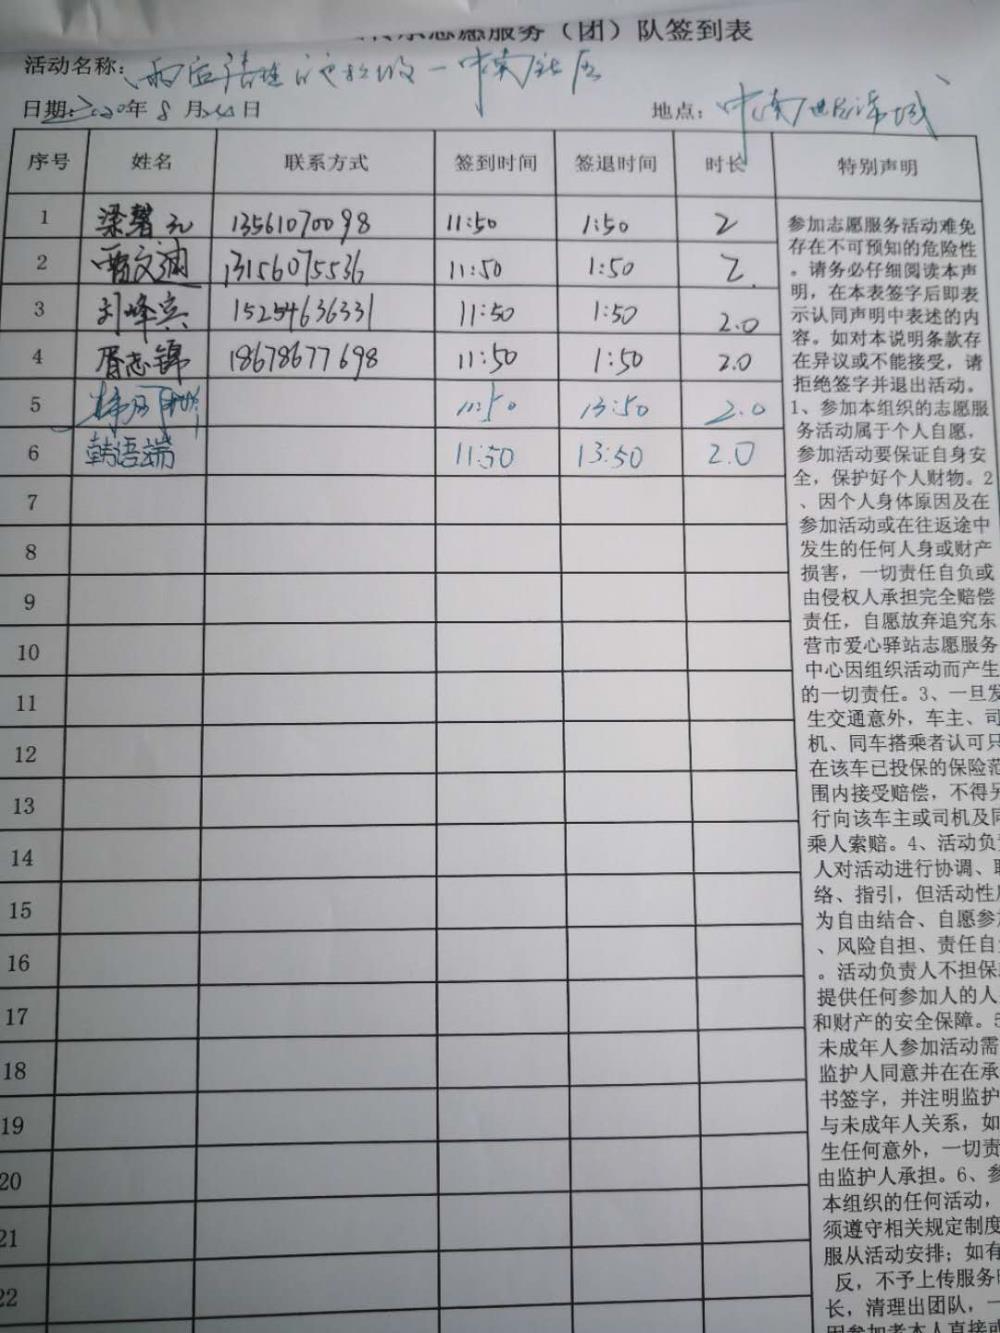 志愿服务（团）队签到表
活动名称: 雨后清理 中南社区
日期: 2020年8月 日 地点: 中南世纪城
序号 姓名 联系方式 签到时间 签退时间 时长 特别声明
1 梁馨元 13561070098 11:50 1:50 2
2 贾文迪 13156075536 11:50 1:50 2
3 刘峰宾 15254636331 11:50 1:50 2.0
4 胥志锦 18678677698 11:50 1:50 2.0
5 11:50 13:50 2.0
6 韩语端 11:50 13:50 2.0
7
8
9
10
11
12
13
14
15
16
17
18
19
20
21
22
参加志愿服务活动难免
存在不可预知的危险性
。请务必仔细阅读本声
明，在本表签字后即表
示认同声明中表述的内
容。如对本说明条款存
在异议或不能接受，请
拒绝签字并退出活动。
1、参加本组织的志愿服
务活动属于个人自愿，
参加活动要保证自身安
全，保护好个人财物。2
、因个人身体原因及在
参加活动或在往返途中
发生的任何人身或财产
损害，一切责任自负或
由侵权人承担完全赔偿
责任，自愿放弃追究东
营市爱心驿站志愿服务
中心因组织活动而产生
的一切责任。3、一旦发
生交通意外，车主、司
机、同车搭乘者认可只
在该车已投保的保险范
围内接受赔偿，不得另
行向该车主或司机及同
乘人索赔。4、活动负责
人对活动进行协调、联
络、指引，但活动性质
为自由结合、自愿参加
、风险自担、责任自负
。活动负责人不担保
提供任何参加人的人
和财产的安全保障。5
未成年人参加活动需
监护人同意并在在承
书签字，并注明监护
与未成年人关系，如
生任何意外，一切责
由监护人承担。6、参
本组织的任何活动，
须遵守相关规定制度
服从活动安排；如有
反，不予上传服务时
长，清理出团队，一
因参加者本人直接或